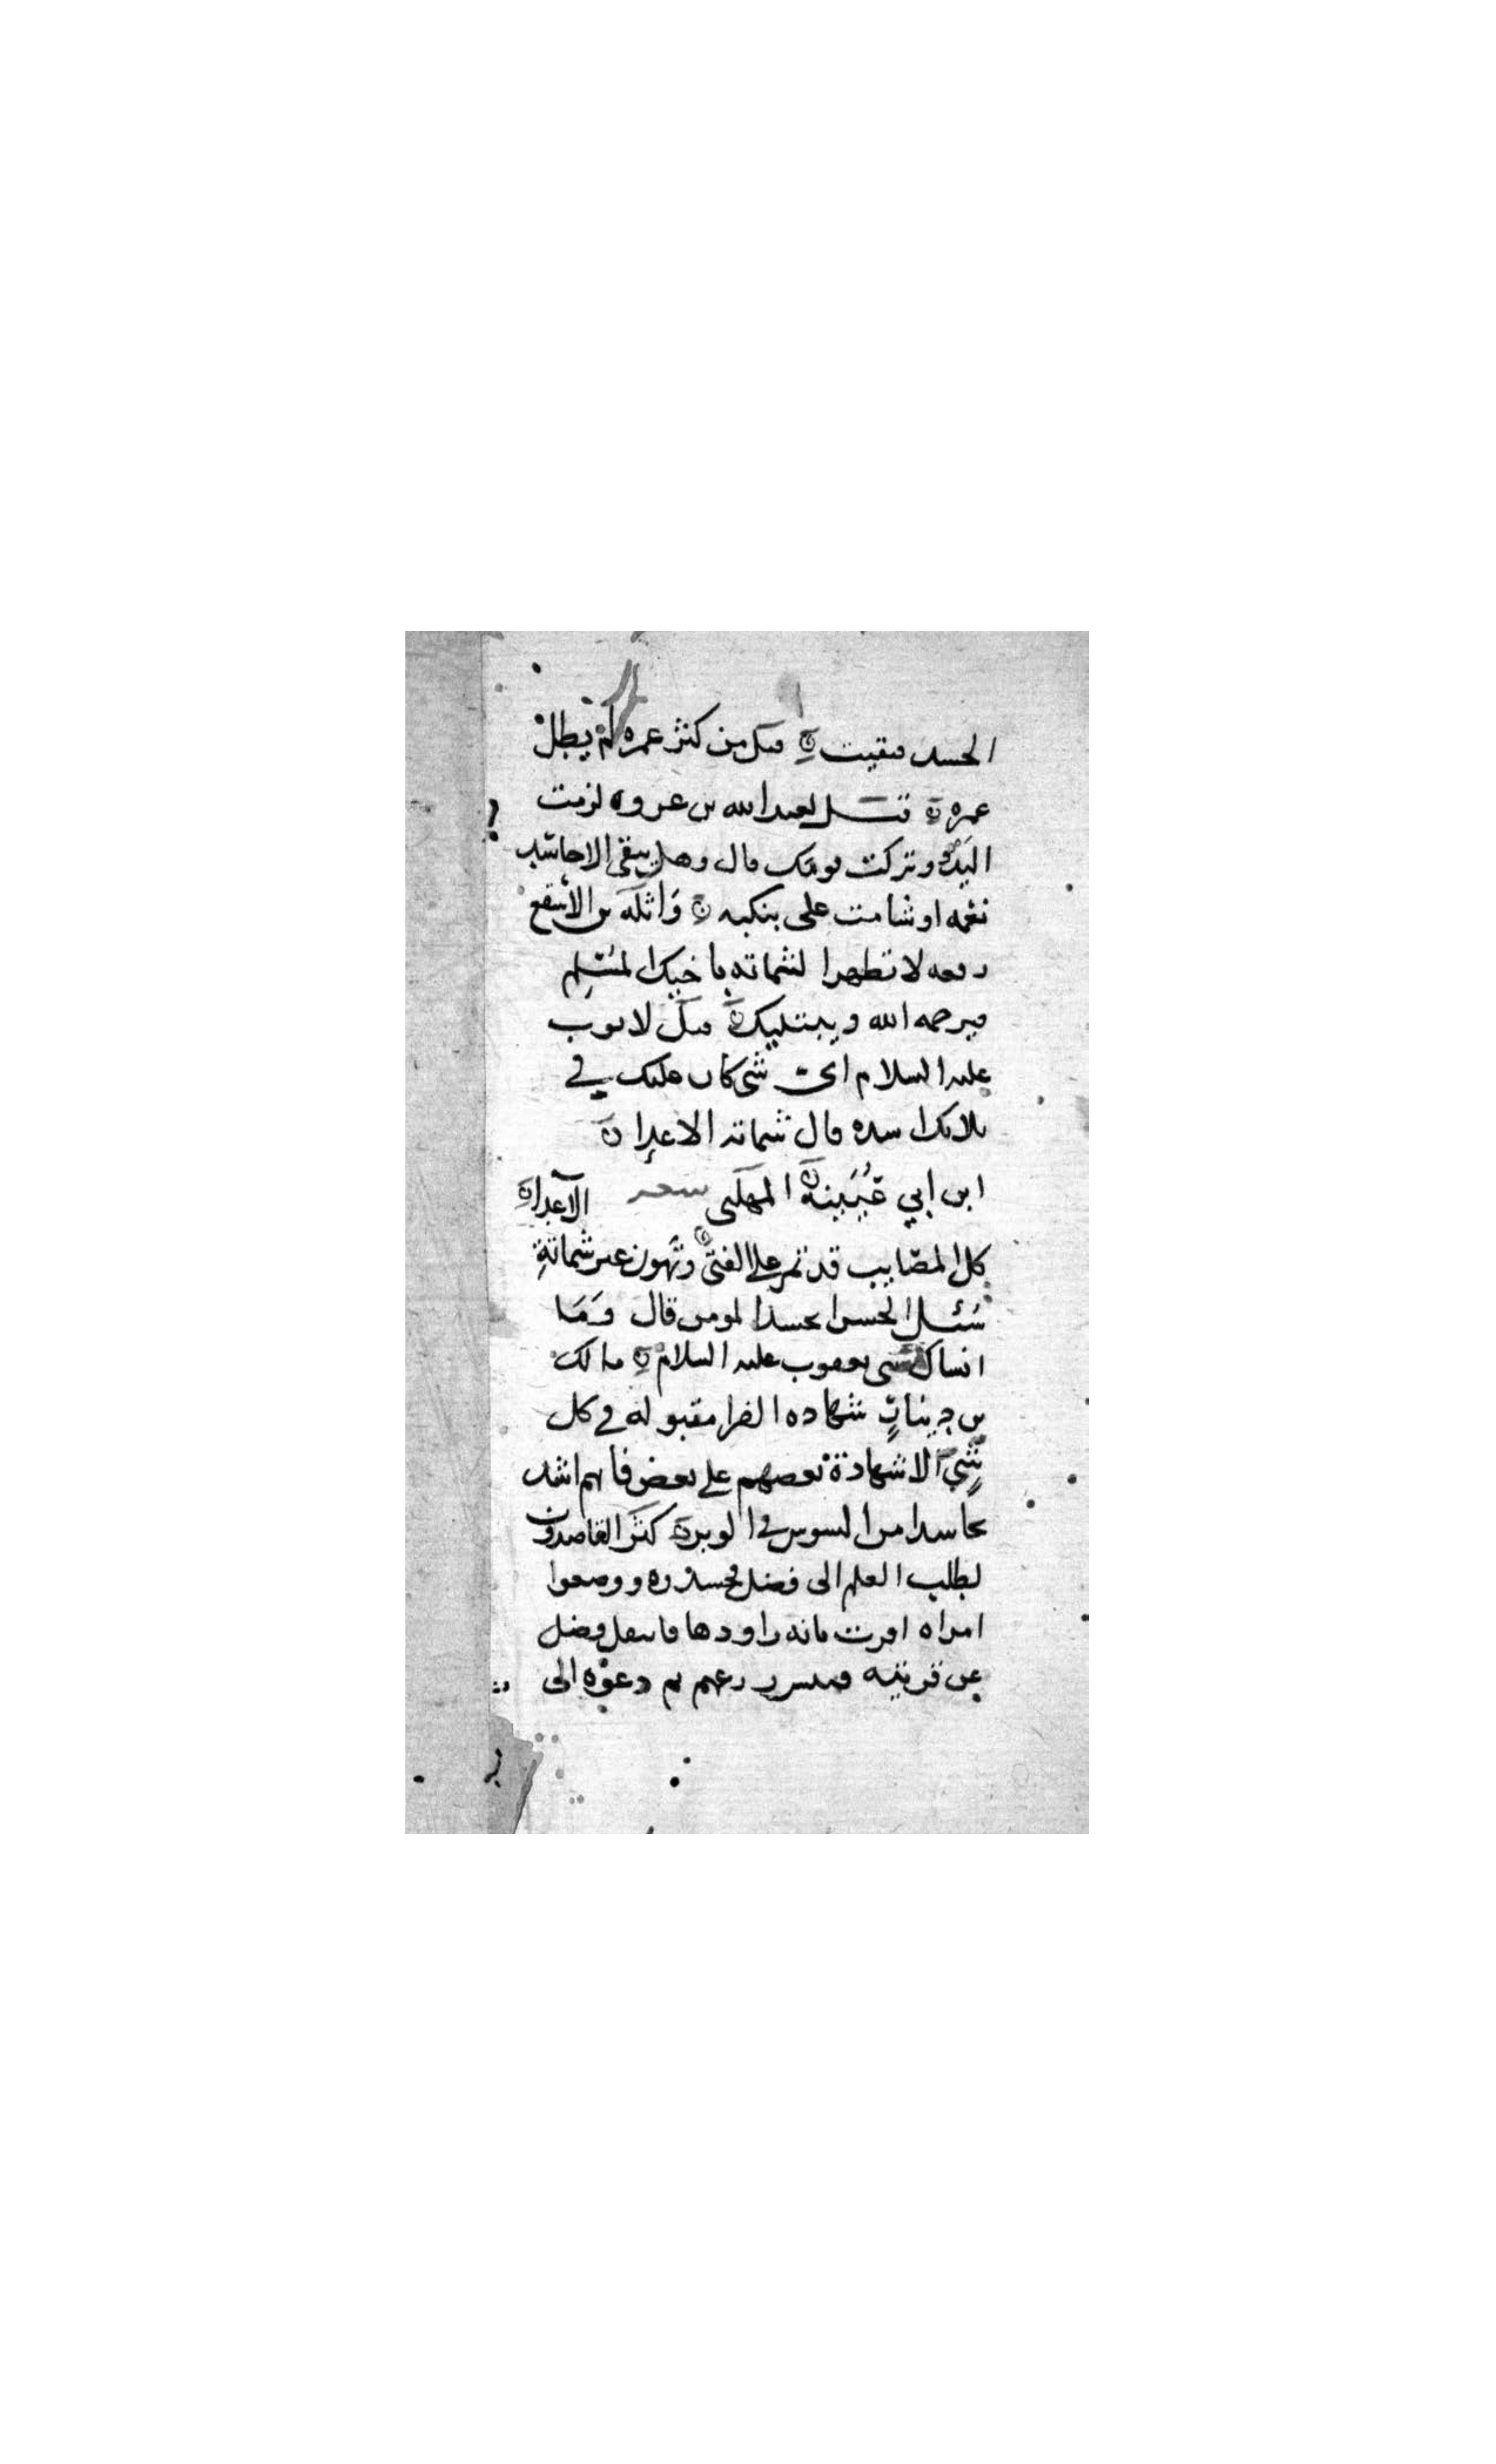 الحسد فبقيت ۞ قيل من كثر عمره لم يطل
عمره ۞ قيل لعبد الله بن عروة لزمت
البدو وتركت قومك قال وهل يبقى الا حاسد
نعمة او شامت على بنكبه ۞ وَاثلَة بن الأسقع
رفعه لا تظهر الشماتة باخيك المسلم
فيرحمه الله ويبتليك ۞ قيل لايوب
عليه السلام اي شي كان عليك في
بلائك اشد قال شماتة الاعدا ۞
ابن ابي عُيَيْنة المهلبي شعر
كل المصايب قد تمر على الفتى ۞ وتهون غير شماتةِ الاعداۤ ۞
سُئل الحسن ايحسد المومن قال وَمَا
انساك بني يعقوب عليه السلام ۞ مالك
بن دينارٍ شهادة القرا مقبولة في كل
شيٍ الا شهادة بعضهم على بعض فانهم اشد
تحاسدا من السوس في الوبر ۞ كثر القاصدون
لطلب العلم الى فضل فحسدوه ووضعوا
امراة اقرت بانه راودها فانتقل فضل
عن قريته زرعهم ثم دعوه الى